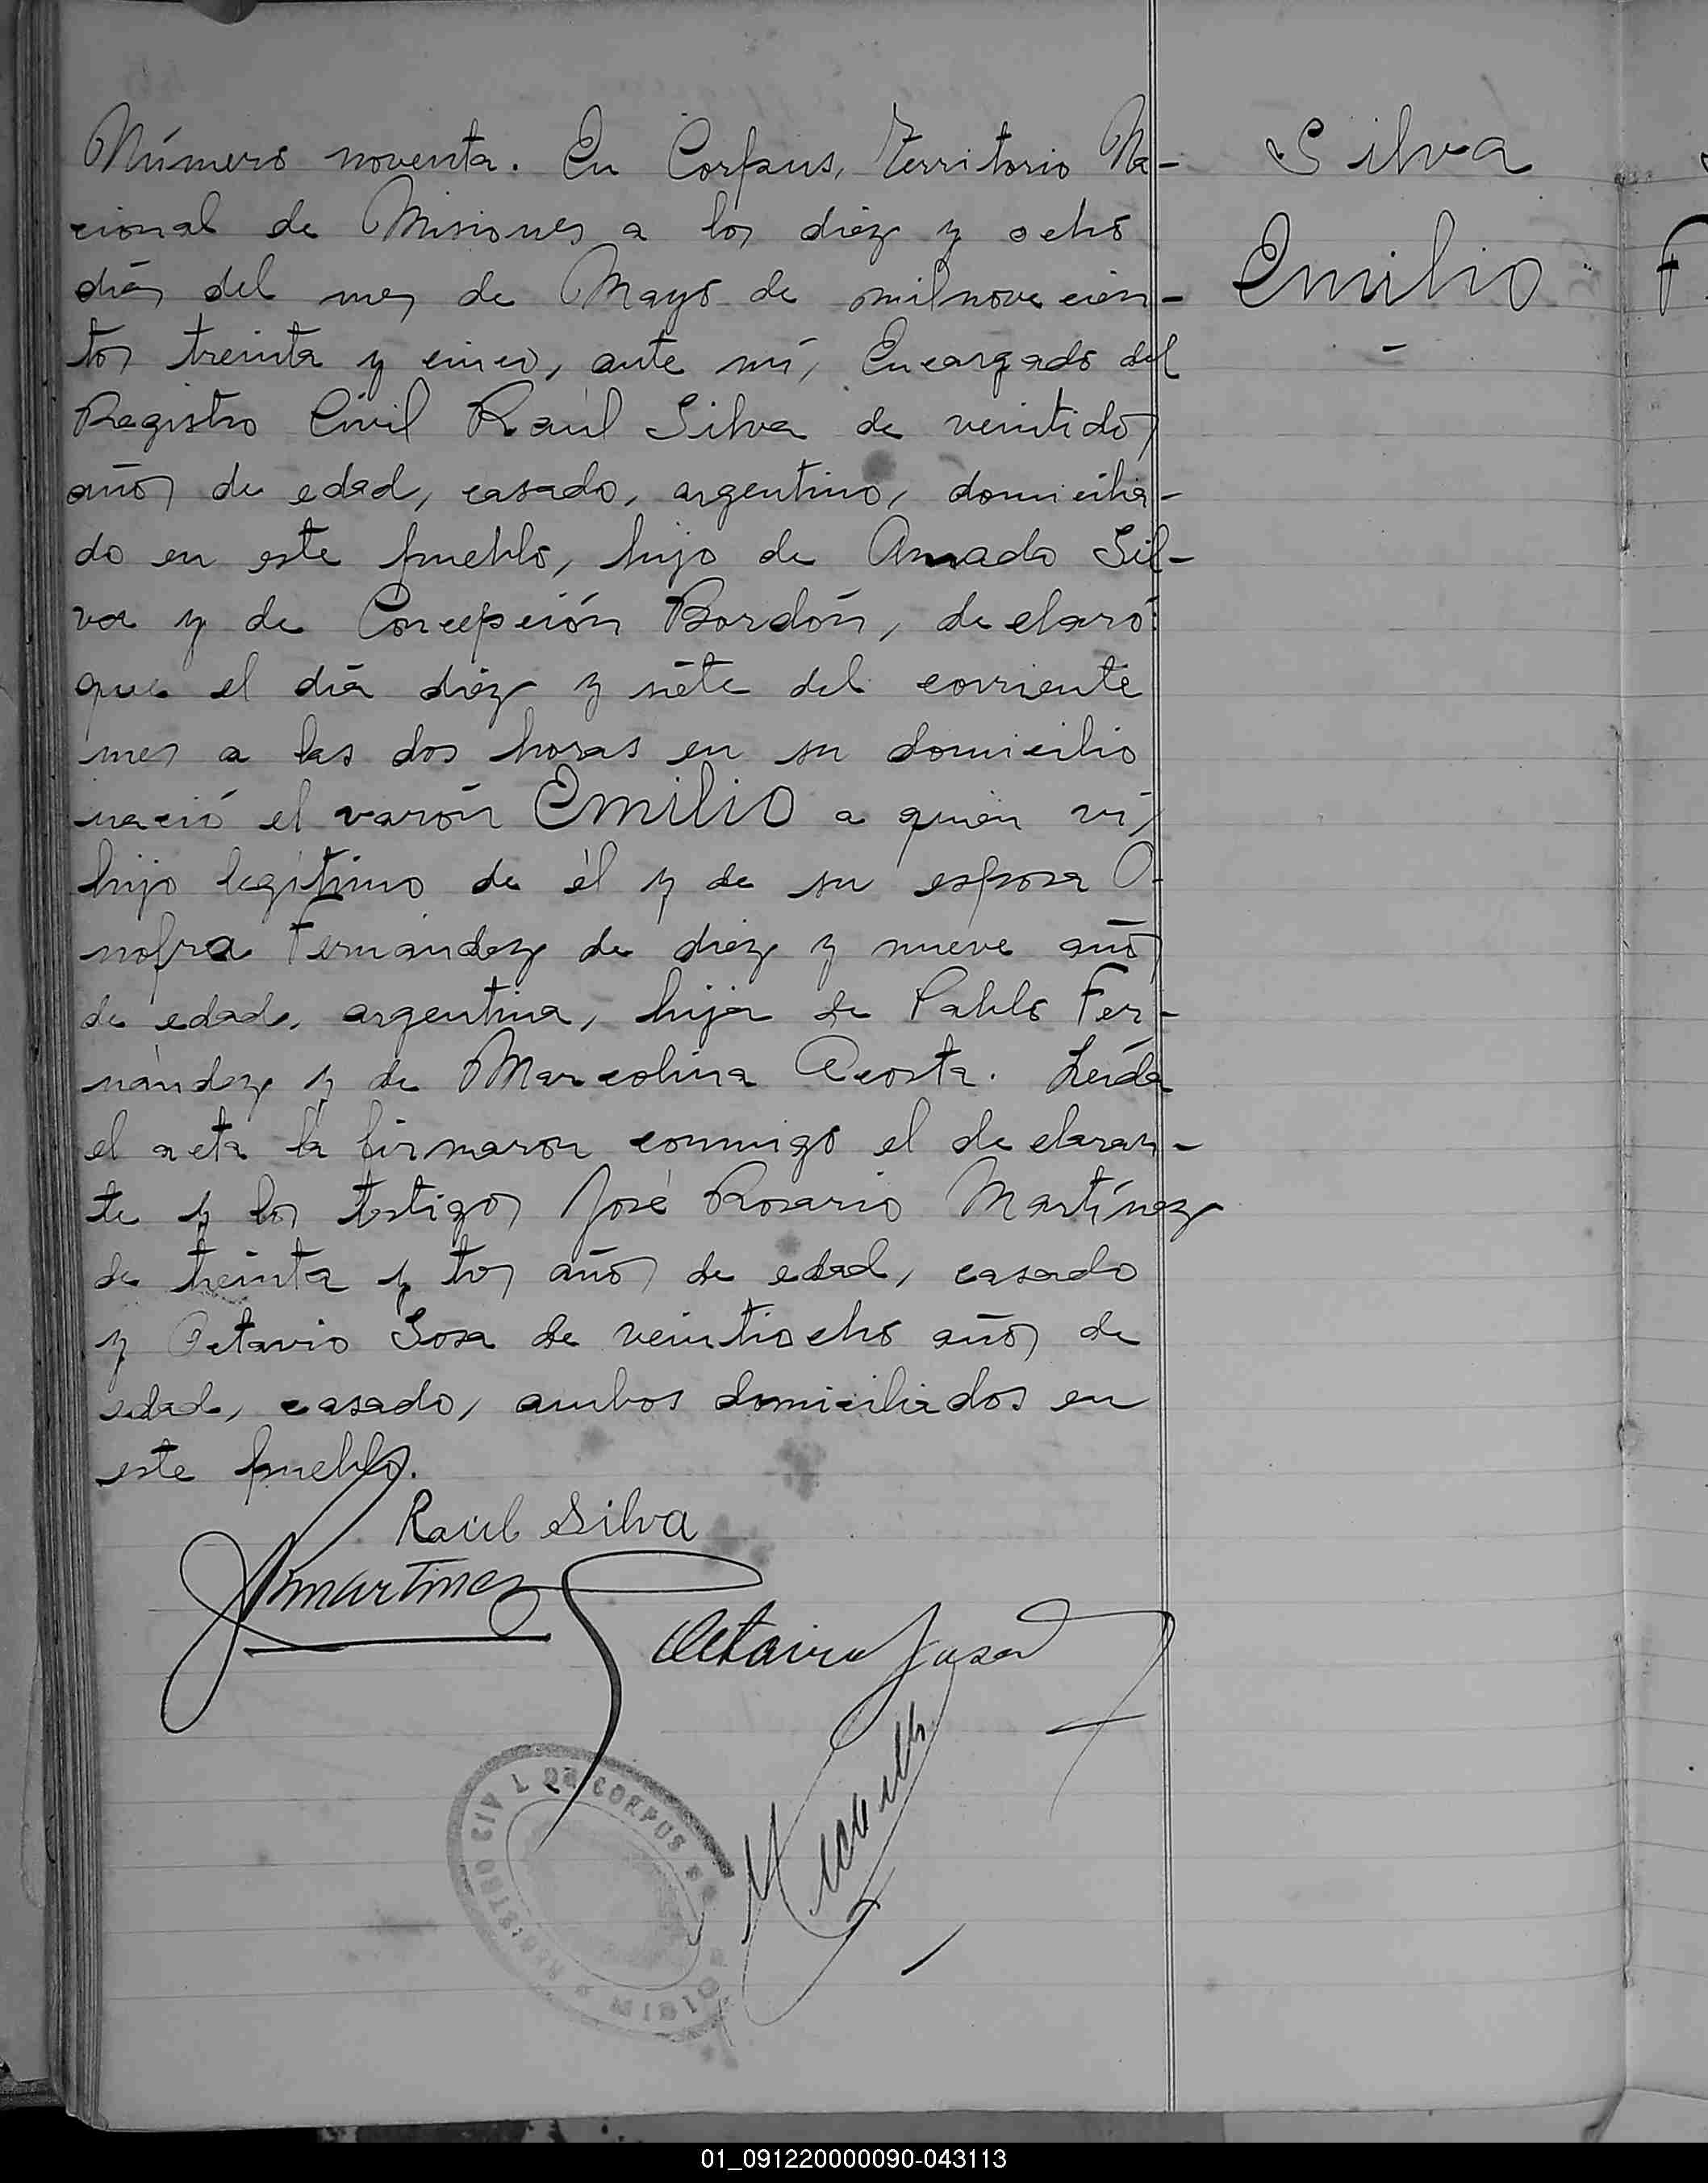 Número noventa. En Corpus, Territorio Na-
cional de Misiones a los diez y ocho
días del mes de Mayo de milnovecien-
tos treinta y cinco, ante mí, Encargado del
Registro Civil Raúl Silva de veintidos
años de edad, casado, argentino, domicilia-
do en este pueblo, hijo de Amado Sil-
va y de Concepción Bordón, declaró:
que el día diez y siete del corriente
mes a las dos horas en su domicilio
nació el varón Emilio a quien ví,
hijo legítimo de él y de su esposa O-
nofra Fernández de diez y nueve años
de edad, argentina, hija de Pablo Fer-
nández y de Marcolina Acosta. Leída
el acta la firmaron conmigo el declaran-
te y los testigos José Rosario Martínez
de treinta y años de edad, casado
y Octavio Sosa de veintiocho años de
edad, casado, ambos domiciliados en
este pueblo.
Silva
Emilio
Raúl Silva
Martinez
REGISTRO CIVIL DE CORPUS
01_091220000090-043113